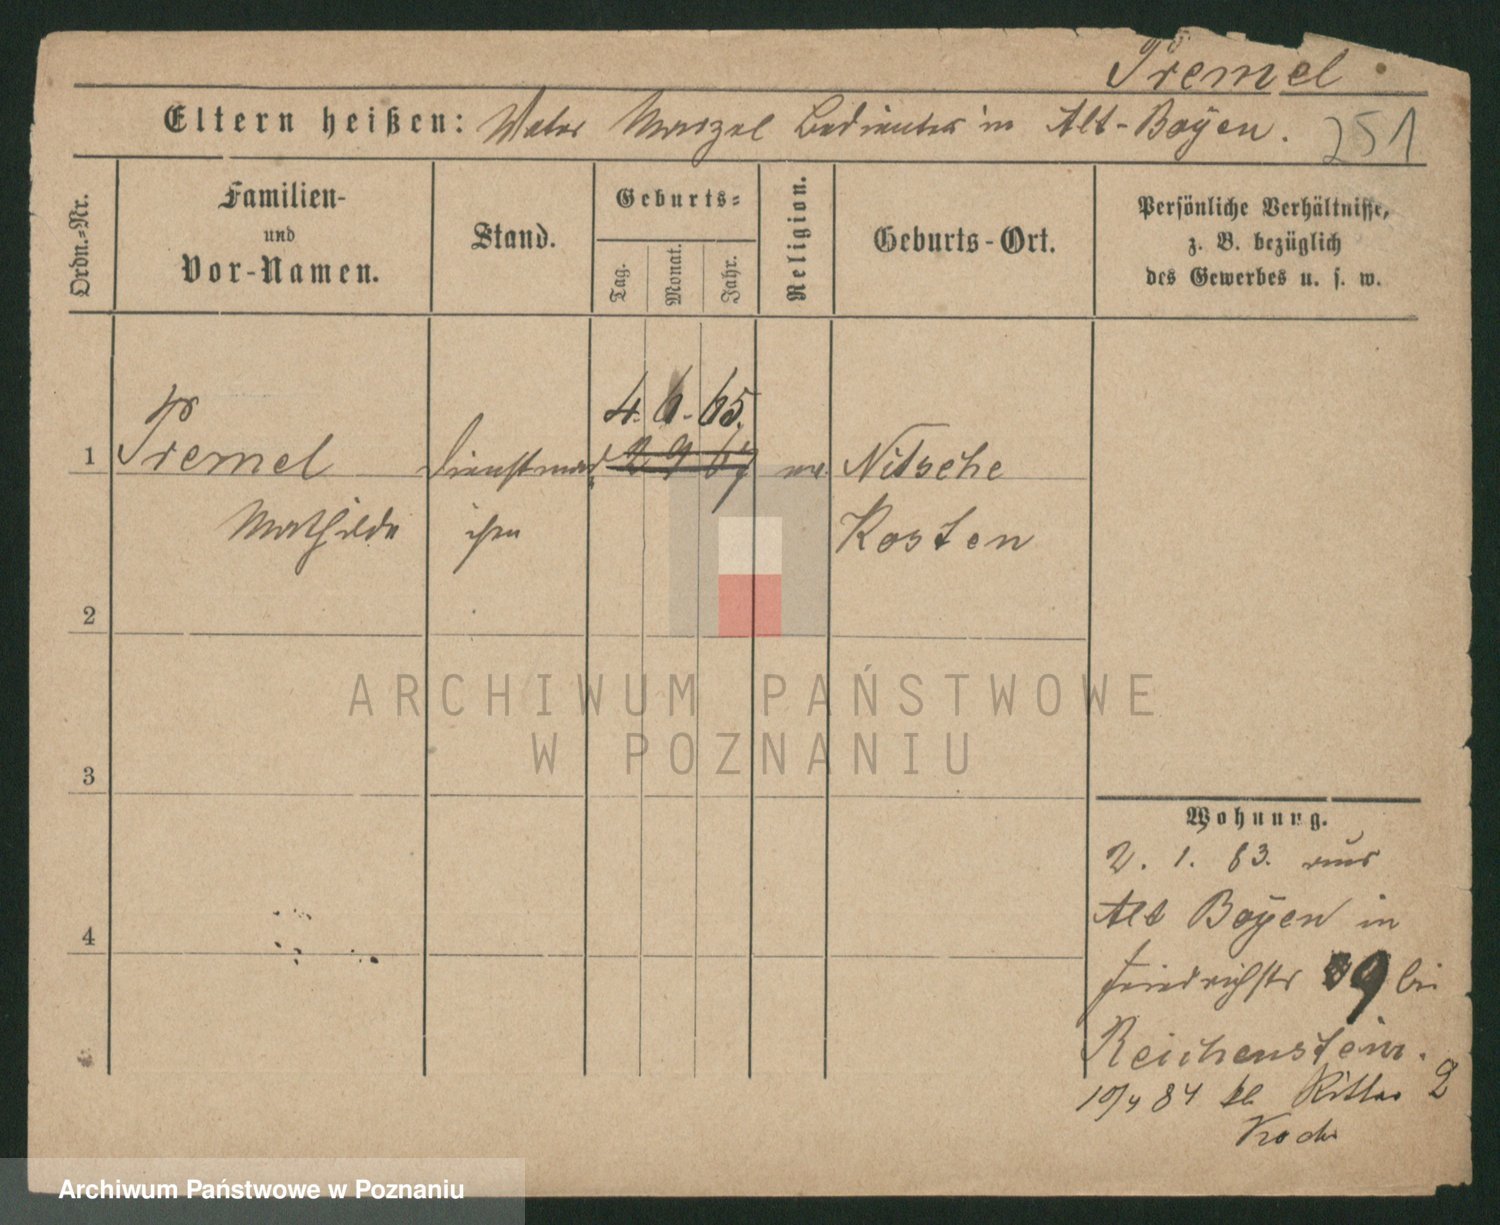 Premel
Eltern heißen: Vater Marzel Bedienter in Alt-Boyen. 251
Ordn.-Nr.
Familien-
und
Vor-Namen.
Stand.
Geburts-
Tag.
Monat.
Jahr.
Religion.
Geburts-Ort.
Persönliche Verhältnisse,
z. B. bezüglich
des Gewerbes u. s. w.
4. 6. 65.
1 Premel Dienstmäd 2 9 67 Nitsche
Mathilde chen Kosten
2
3
4
Wohnung.
2. 1. 83. aus
Alt Boyen in
Friedrichstr 9 bei
Reichenstein.
10/4 84 kl. Ritter 2
ARCHIWUM PAŃSTWOWE
W POZNANIU
Archiwum Państwowe w Poznaniu